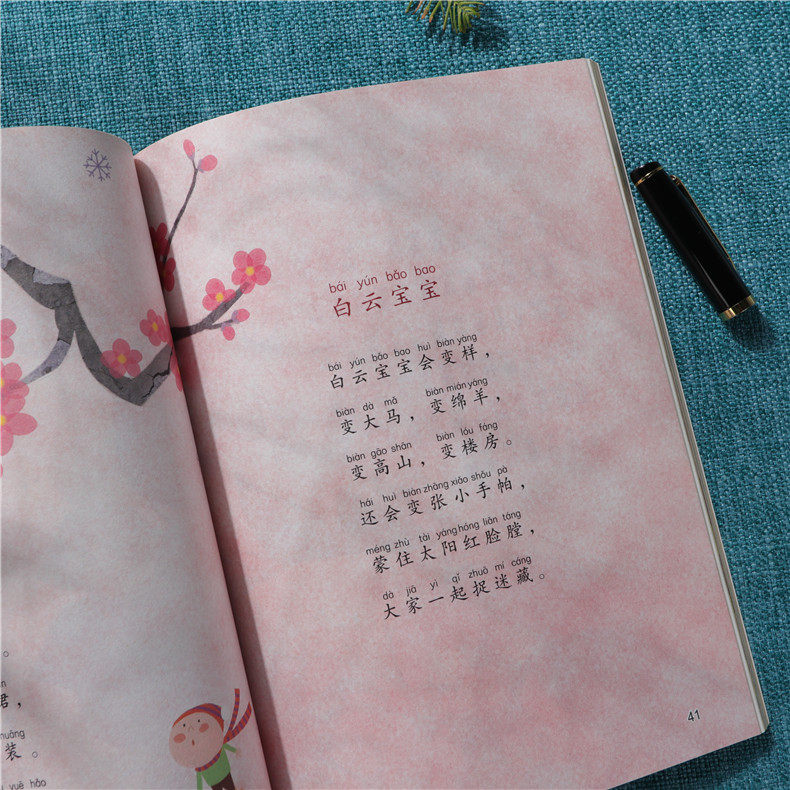 nuāng
装。
yuè hǎo
bái yún bǎo bao
白云宝宝
bái yún bǎo bao huì biàn yàng
白云宝宝会变样，
biàn dà mǎ biàn mián yáng
变大马，变绵羊，
biàn gāo shān biàn lóu fáng
变高山，变楼房。
hái huì biàn zhāng xiǎo shǒu pà
还会变张小手帕，
méng zhù tài yáng hóng liǎn táng
蒙住太阳红脸膛，
dà jiā yì qǐ zhuō mí cáng
大家一起捉迷藏。
41